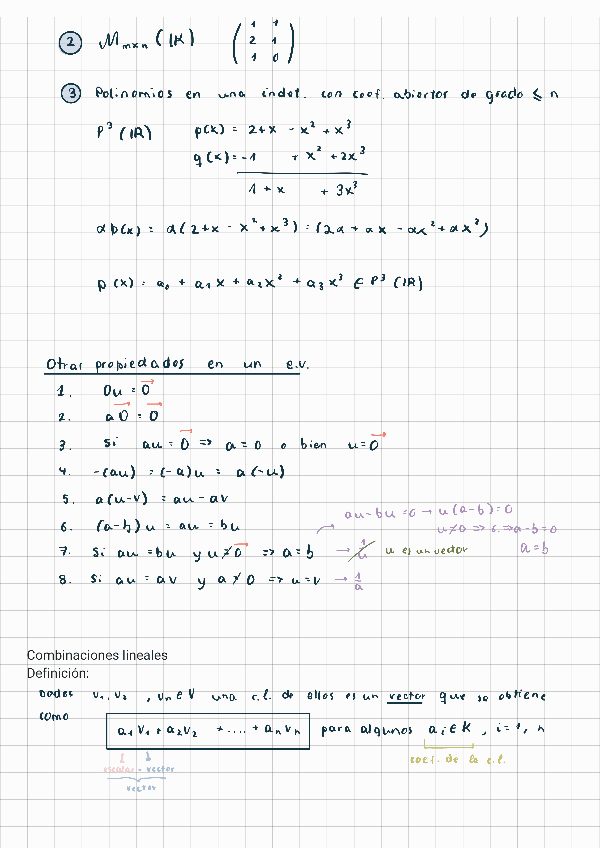 2 M m×n (IK) ( 1 1
2 1
1 0 )
3 Polinomios en una indet. con coef. abiertos de grado ≤ n
P³ (IR) p(x) = 2+x - x² + x³
q(x) = -1 + x² + 2x³
1 + x + 3x³
α p(x) = α(2+x - x²+x³) = (2α + αx - αx²+ αx³)
p(x) = a₀ + a₁x + a₂x² + a₃x³ ∈ P³ (IR)
Otras propiedades en un e.v.
1. 0u = 0⃗
2. a0⃗ = 0⃗
3. Si au = 0⃗ => a = 0 o bien u = 0⃗
4. -(au) = (-a)u = a(-u)
5. a(u-v) = au - av
6. (a-b)u = au = bu
au-bu=0 → u(a-b)=0
u≠0 => a-b=0
7. Si au = bu y u≠0⃗ => a = b → 1/u u es un vector a=b
8. Si au = av y a≠0 => u = v → 1/a
Combinaciones lineales
Definición:
Dados v₁, v₂ , vₙ ∈ V una c.l. de ellos es un vector que se obtiene
como a₁v₁ + a₂v₂ + .... + aₙvₙ para algunos aᵢ ∈ K , i = 1, n
escalar · vector coef. de la c.l.
vector